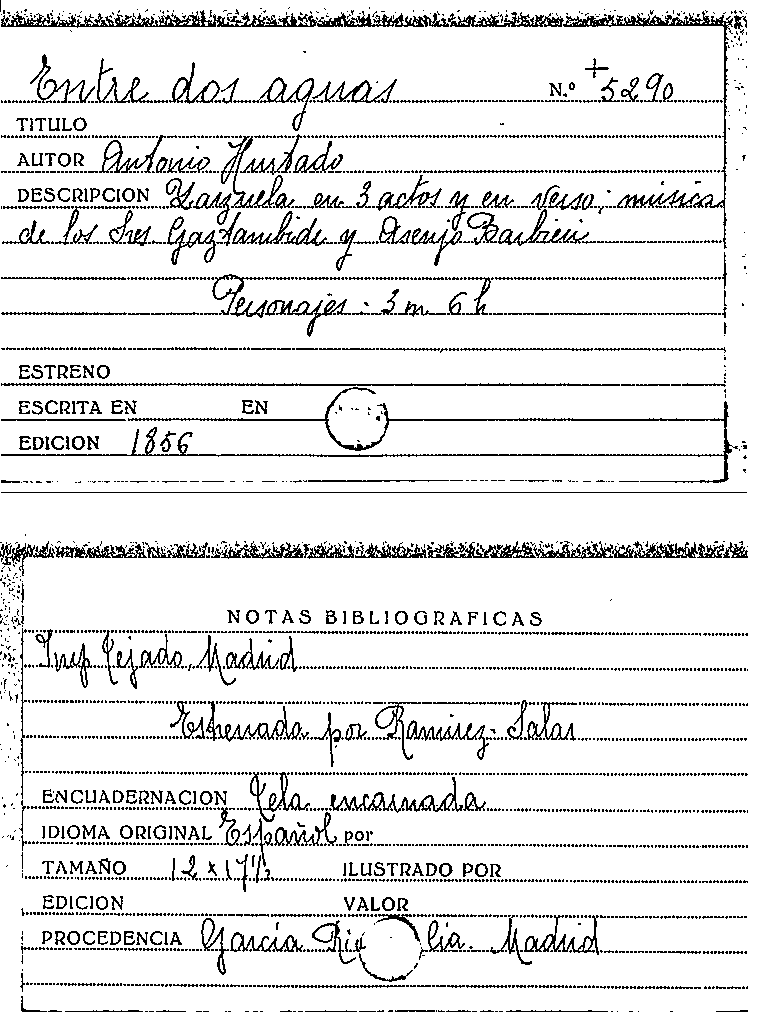 Entre dos aguas N.º +5290
TITULO
AUTOR Antonio Hurtado
DESCRIPCION Zarzuela en 3 actos y en verso; música
de los Sres Gaztambide y Asenjo Barbieri
Personajes: 3 m 6 h
ESTRENO
ESCRITA EN EN
EDICION 1856
NOTAS BIBLIOGRAFICAS
Imp Tejado, Madrid
Estrenada por Ramirez. Salas
ENCUADERNACION Tela encarnada
IDIOMA ORIGINAL Español por
TAMAÑO 12 x 17½ ILUSTRADO POR
EDICION VALOR
PROCEDENCIA García Madrid